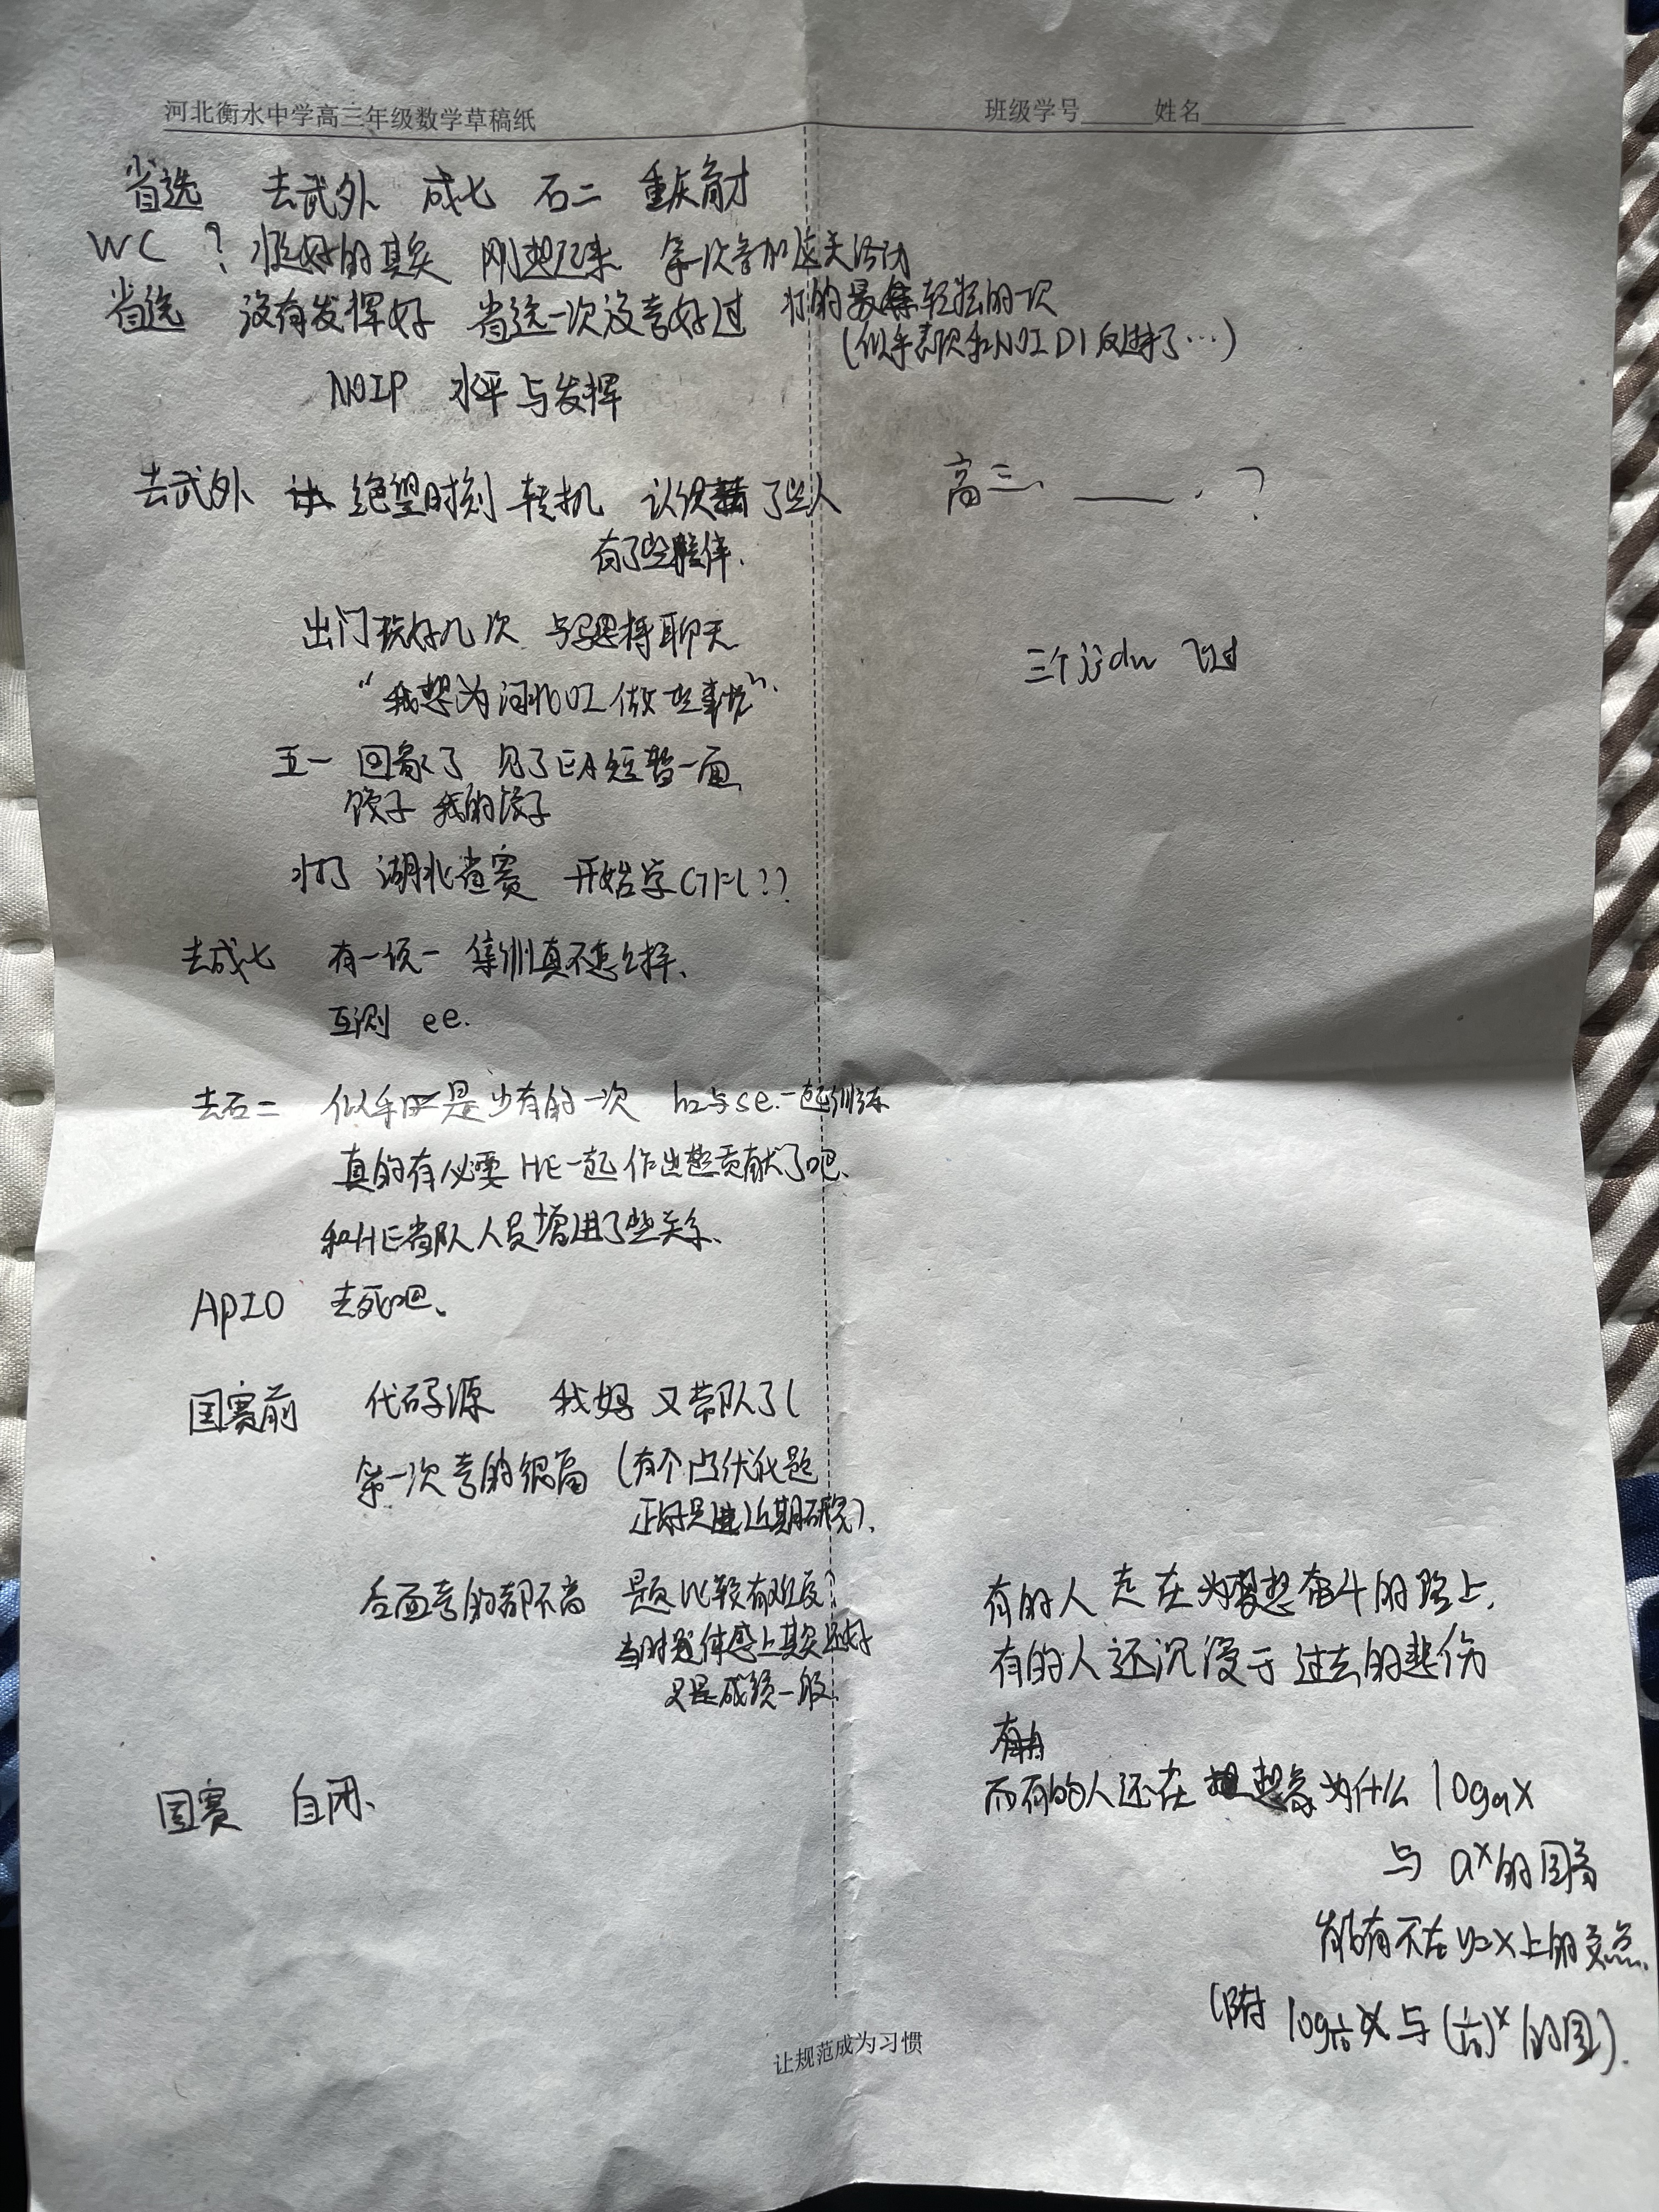 河北衡水中学高三年级数学草稿纸
班级学号 姓名
省选 去武外 成七 石二 重庆育才
WC ? 挺好的其实 刚想起来 第一次参加这类活动
省选 没有发挥好 省选一次没考好过 打的最轻松的一次
(似乎表现和NOI D1反过来了…)
NOIP 水平与发挥
去武外 绝望时刻 转机 认识了些人
有了些伙伴.
出门玩好几次 聊天
"我想为河北OI做些事情".
五一 回家了 见了EA短暂一面
饺子 我的饺子
打了 湖北省赛 开始学CTF(?)
去成七 有一说一 集训真不怎么样、
互测 ee.
去石二 似乎是少有的一次 hz与se.一起训练
真的有必要HE一起作出些贡献了吧、
和HE省队人员增进了些关系、
APIO 去死吧、
国赛前 代码源 我妈又带队了(
第一次考的很高 (有个凸优化题
正好是近期研究)、
后面考的都不高 题比较有难度?
当时体感上其实还好
只是成绩一般.
国赛 自闭、
高三、 、?
三个jjdw 飞过
有的人走在为梦想奋斗的路上,
有的人还沉浸于过去的悲伤
而有的人还在想象为什么 logₐx
与 aˣ的图象
有不在y=x上的交点、
(附 log 1/10 x 与 (1/10)ˣ的图).
让规范成为习惯